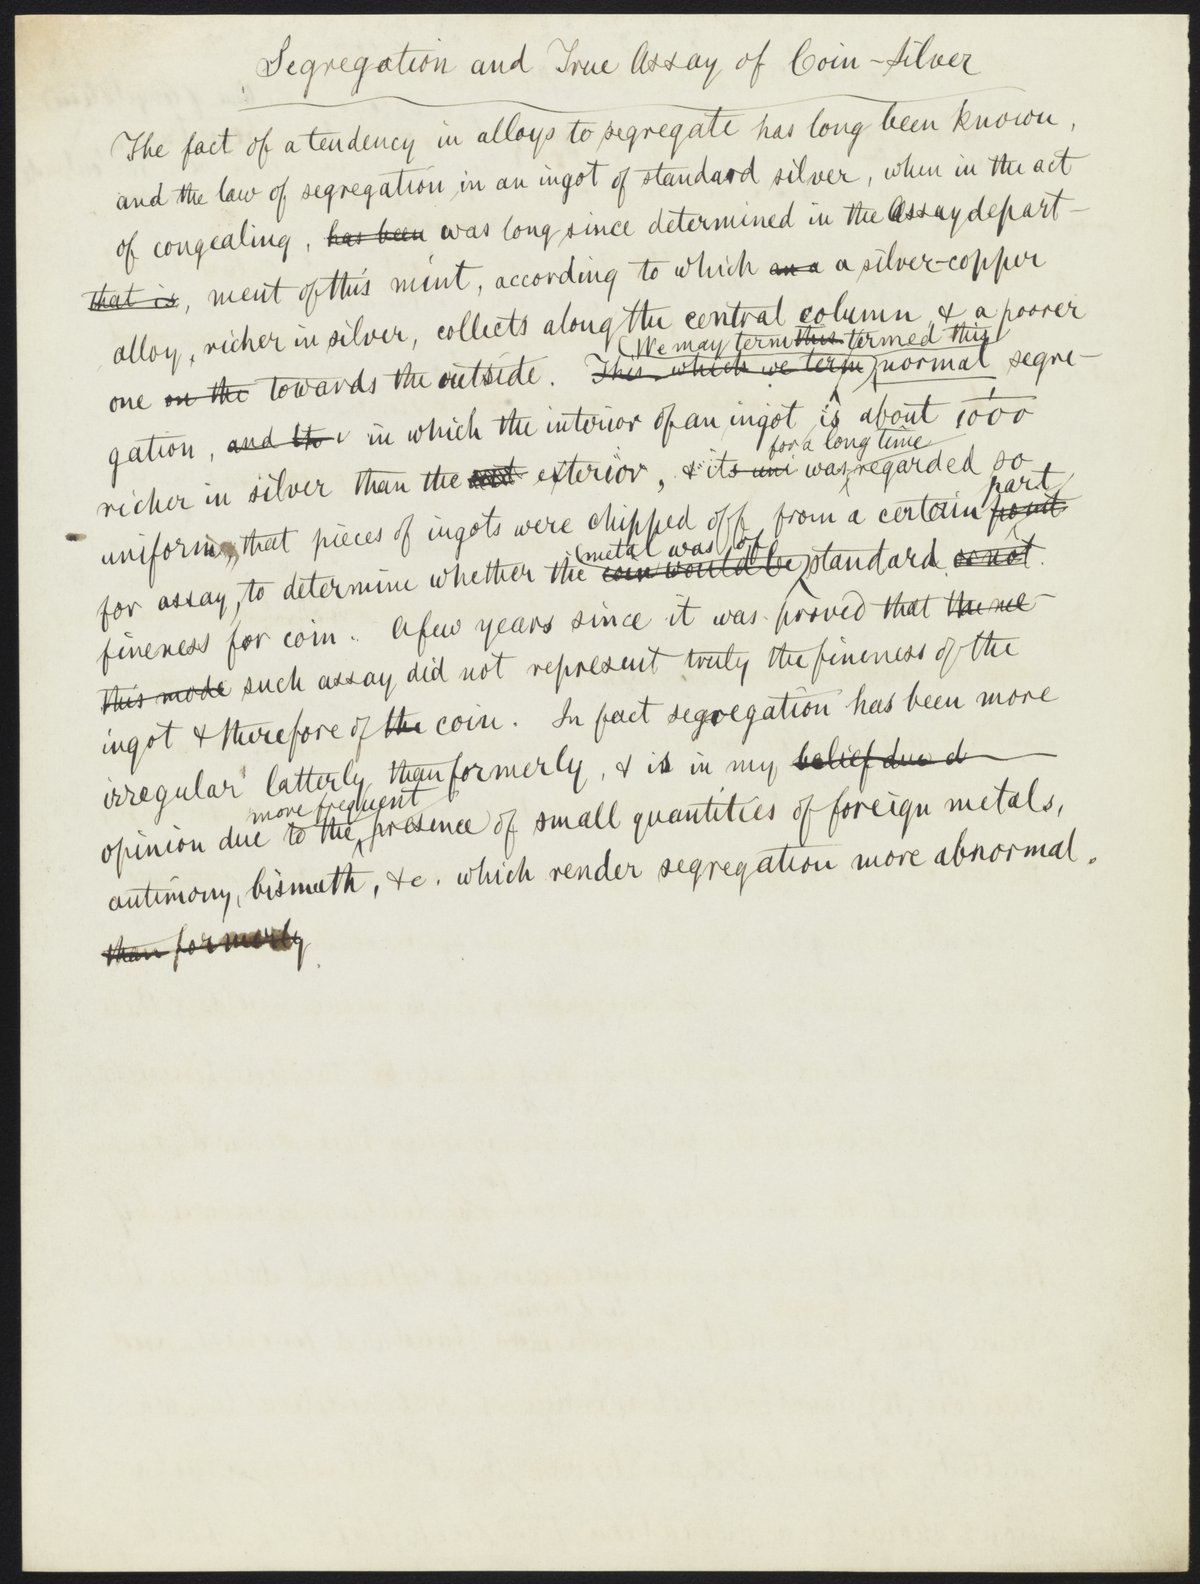 Segregation and True Assay of Coin-Silver
The fact of a tendency in alloys to segregate has long been known,
and the law of segregation in an ingot of standard silver, when in the act
of congealing, has been was long since determined in the Assay depart-
that is, ment of this mint, according to which an a a silver-copper
alloy, richer in silver, collects along the central column & a poorer
(We may term this termed this
one on the towards the outside. This which we term) normal segre-
gation, and the in which the interior of an ingot is about 1/1000
for a long time
richer in silver than the exterior, & its uni was regarded so
part
uniform, that pieces of ingots were chipped off from a certain point
(metal was of
for assay, to determine whether the coin would be) standard or not.
fineness for coin. A few years since it was proved that the
this mode such assay did not represent truly the fineness of the
ingot & therefore of the coin. In fact segregation has been more
irregular latterly than formerly, & is in my belief due d
more frequent
opinion due to the presence of small quantities of foreign metals,
antimony, bismuth, &c. which render segregation more abnormal.
than formerly